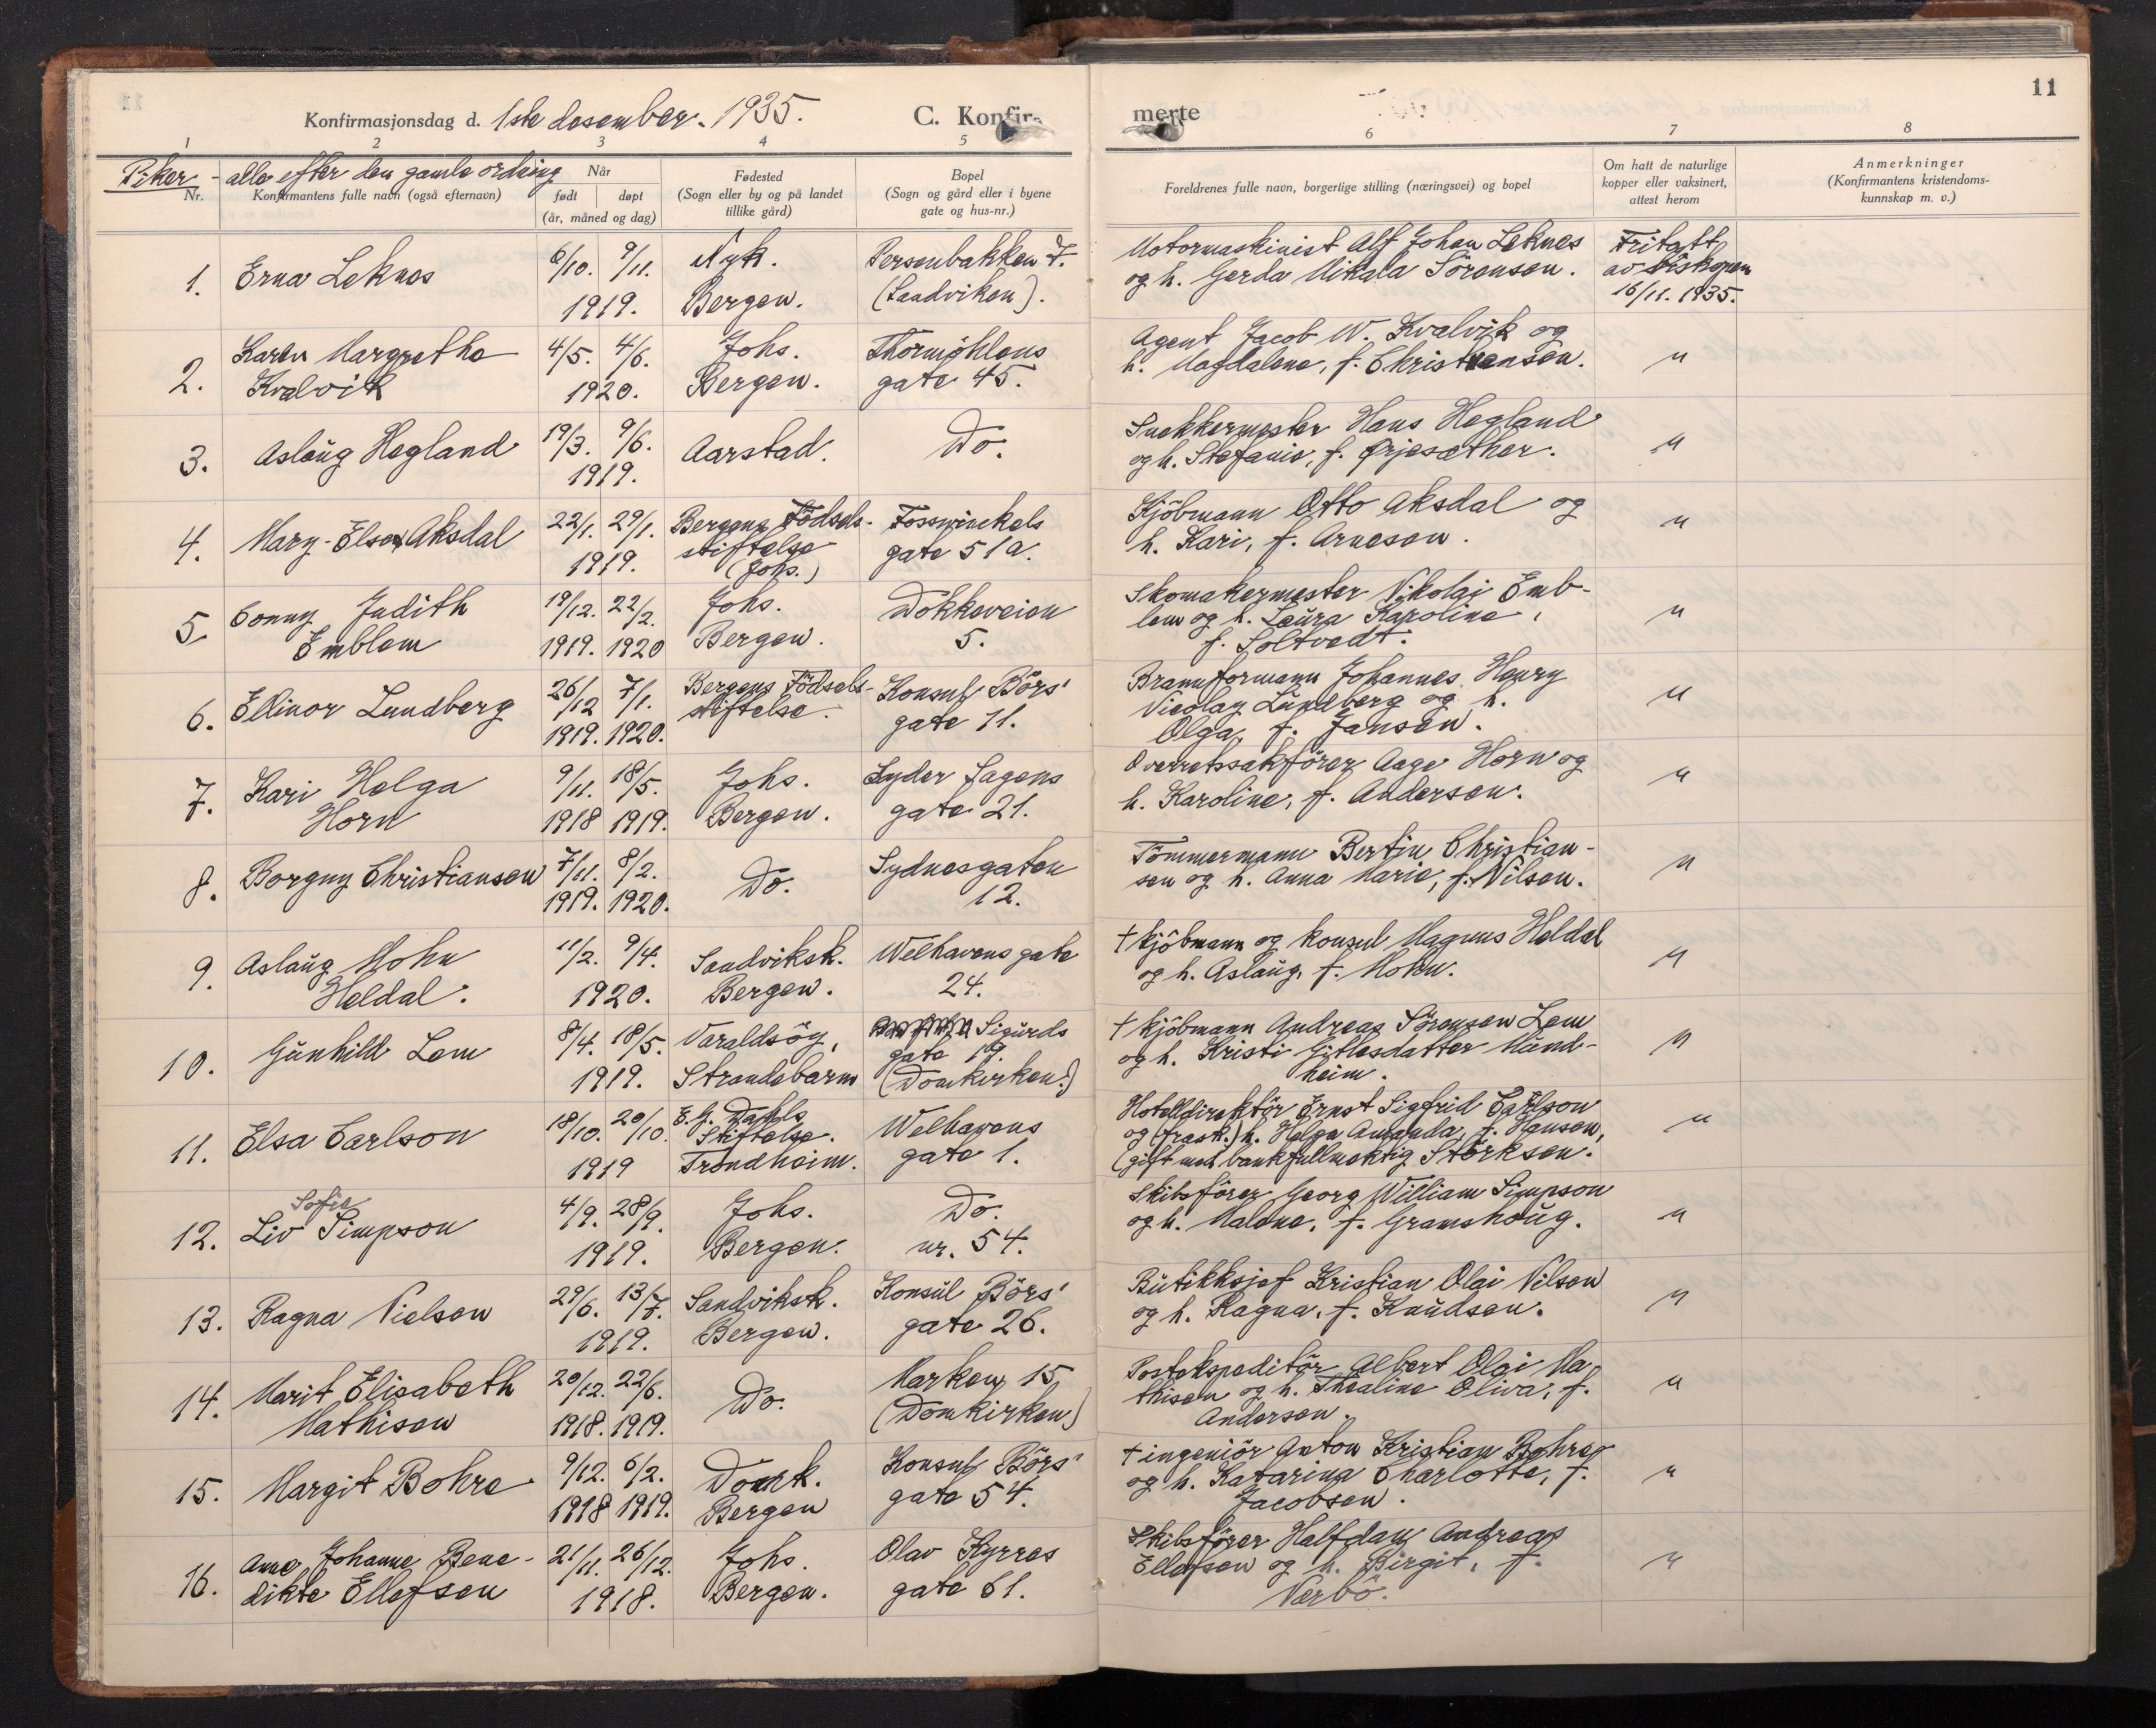 11
Konfirmasjonsdag d. 1ste desember. 1935.
C. Konfir-
merte
1 2 3 4 5 6 7 8
Piker - alle efter den gamle ordning
Nr.
Konfirmantens fulle navn (også efternavn)
Når
født døpt
(år, måned og dag)
Fødested
(Sogn eller by og på landet
tillike gård)
Bopel
(Sogn og gård eller i byene
gate og hus-nr.)
Foreldrenes fulle navn, borgerlige stilling (næringsvei) og bopel
Om hatt de naturlige
kopper eller vaksinert,
attest herom
Anmerkninger
(Konfirmantens kristendoms-
kunnskap m. v.)
1. Erna Leknes
6/10. 9/11.
1919.
Nyk.
Bergen.
Persenbakken 7.
(Sandviken).
Motormaskinist Alf Johan Leknes
og h. Gerda Mikala Sörensen.
Fritatt
av biskopen
16/11. 1935.
2. Karen Margrethe
Kvalvik
4/5. 4/6.
1920.
Johs.
Bergen.
Thormøhlens
gate 45.
Agent Jacob W. Kvalvik og
h. Magdalene, f. Christensen.
"
3. Aslaug Hegland
19/3. 9/6.
1919.
Aarstad.
Do.
Snekkermester Hans Hegland
og h. Stefanie, f. Ørjesæther.
"
4. Mary-Else Aksdal
22/1. 29/1.
1919.
Bergens Födsels-
stiftelse
(Johs.)
Fosswinckels
gate 51a.
Kjöbmann Otto Aksdal og
h. Kari, f. Arnesen.
"
5. Conny Judith
Emblem
19/12. 22/2.
1919. 1920
Johs.
Bergen.
Dokkeveien
5.
Skomakermester Nikolai Emb-
lem og h. Laura Karoline,
f. Soltvedt.
"
6. Ellinor Lundberg
26/12 7/1.
1919. 1920.
Bergens Födsels-
stiftelse.
Konsul Börs'
gate 11.
Brannformann Johannes Henry
Nicolay Lundberg og h.
Olga, f. Jansen.
"
7. Kari Helga
Horn
9/11. 18/5.
1918 1919.
Johs.
Bergen.
Lyder Sagens
gate 21.
Overretssakförer Aage Horn og
h. Karoline, f. Andersen.
"
8. Borgny Christiansen
7/11. 8/2.
1919. 1920.
Do.
Sydnesgaten
12.
Tömmermann Bertin Christian-
sen og h. Anna Marie, f. Nilsen.
"
9. Aslaug Mohn
Heldal.
11/2. 9/4.
1920.
Sandviksk.
Bergen.
Welhavens gate
24.
† kjöbmann og konsul Magnus Heldal
og h. Aslaug, f. Mohn.
"
10. Gunhild Lem
8/4. 18/5.
1919.
Varaldsöy,
Strandebarm
Sigurds
gate 19.
(Domkirken.)
† kjöbmann Andreas Sörensen Lem
og h. Kristi Gitlesdatter Mund-
heim.
"
11. Elsa Carlson
18/10. 20/10.
1919
E. G. Dahls
Stiftelse.
Trondheim.
Welhavens
gate 1.
Hotelldirektör Ernst Sigfrid Carlson
og (frask.) h. Helga Amanda, f. Hansen,
(gift med bankfullmektig Störksen.
"
12. Liv Sofie Simpson
4/9. 28/9.
1919.
Johs.
Bergen.
Do.
nr. 54.
Skibsförer Georg William Simpson
og h. Malene, f. Gramshaug.
"
13. Ragna Nielsen
29/6. 13/7.
1919.
Sandviksk.
Bergen.
Konsul Börs'
gate 26.
Butikksjef Kristian Olai Nilsen
og h. Ragna, f. Knudsen.
"
14. Marit Elisabeth
Mathisen
20/12. 22/6.
1918. 1919.
Do.
Marken 15.
(Domkirken)
Postekspeditör Albert Olai Ma-
thisen og h. Thealine Oliva, f.
Andersen.
"
15. Margit Bohre
9/12. 6/2.
1918 1919.
Domk.
Bergen
Konsul Börs'
gate 54.
† ingeniör Anton Kristian Bohre
og h. Katarina Charlotte, f.
Jacobsen.
"
16. Anne Johanne Bene-
dikte Ellefsen
21/11. 26/12.
1918.
Johs.
Bergen.
Olav Kyrres
gate 61.
Skibsförer Halfdan Andreas
Ellefsen og h. Birgit, f.
Nerbö.
"